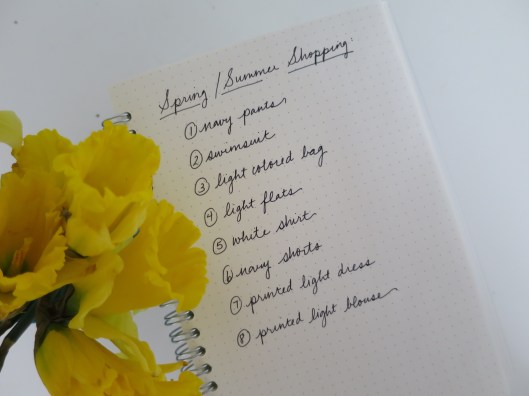 Spring/Summer Shopping:
① navy pants
② swimsuit
③ light colored bag
④ light flats
⑤ white shirt
⑥ navy shorts
⑦ printed light dress
⑧ printed light blouse